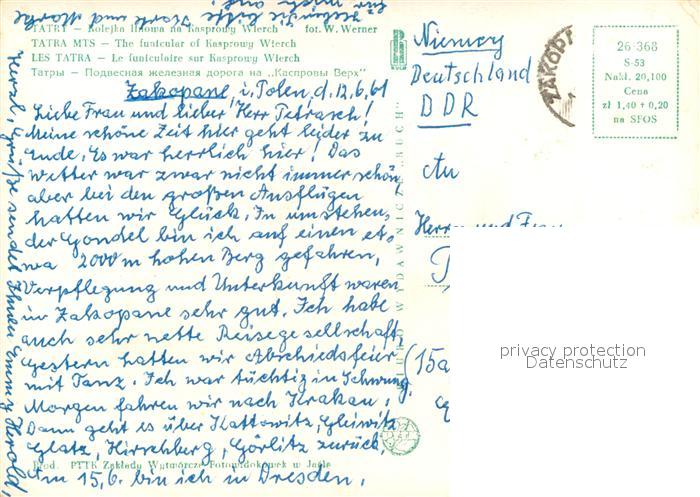 TATRY — Kolejka linowa na Kasprowy Wierch fot. W. Werner
TATRA MTS — The funicular of Kasprowy Wierch
LES TATRA — Le funiculaire sur Kasprowy Wierch
Татры — Подвесная железная дорога на „Каспровы Верх"
Zakopane, i. Polen, d. 12.6.61
Liebe Frau und lieber Herr Petrasch!
Meine schöne Zeit hier geht leider zu
Ende. Es war herrlich hier! Das
Wetter war zwar nicht immer schön,
aber bei den großen Ausflügen
hatten wir Glück. In umstehen,
der Gondel bin ich auf einen et,
wa 2000 m hohen Berg gefahren.
Verpflegung und Unterkunft waren
in Zakopane sehr gut. Ich habe
auch sehr nette Reisegesellschaft,
Gestern hatten wir Abschiedsfeier
mit Tanz. Ich war tüchtig in Schwung.
Morgen fahren wir nach Krakau.
Dann geht es über Kattowitz, Gleiwitz
Glatz, Hirschberg, Görlitz zurück.
Am 15.6. bin ich in Dresden.
Herzl. Grüße sendet Ihnen Emmy Herold,
Prod. PTTK Zakłady Wytwórcze Fotowidokówek w Jaśle
BIURO WYDAWNICZE „RUCH"
Niemcy
Deutschland
DDR
An
Herrn und Frau
(15a
ZAKOP
26-368
S-53
Nakł. 20,100
Cena
zł 1,40 + 0,20
na SFOS
privacy protection
Datenschutz